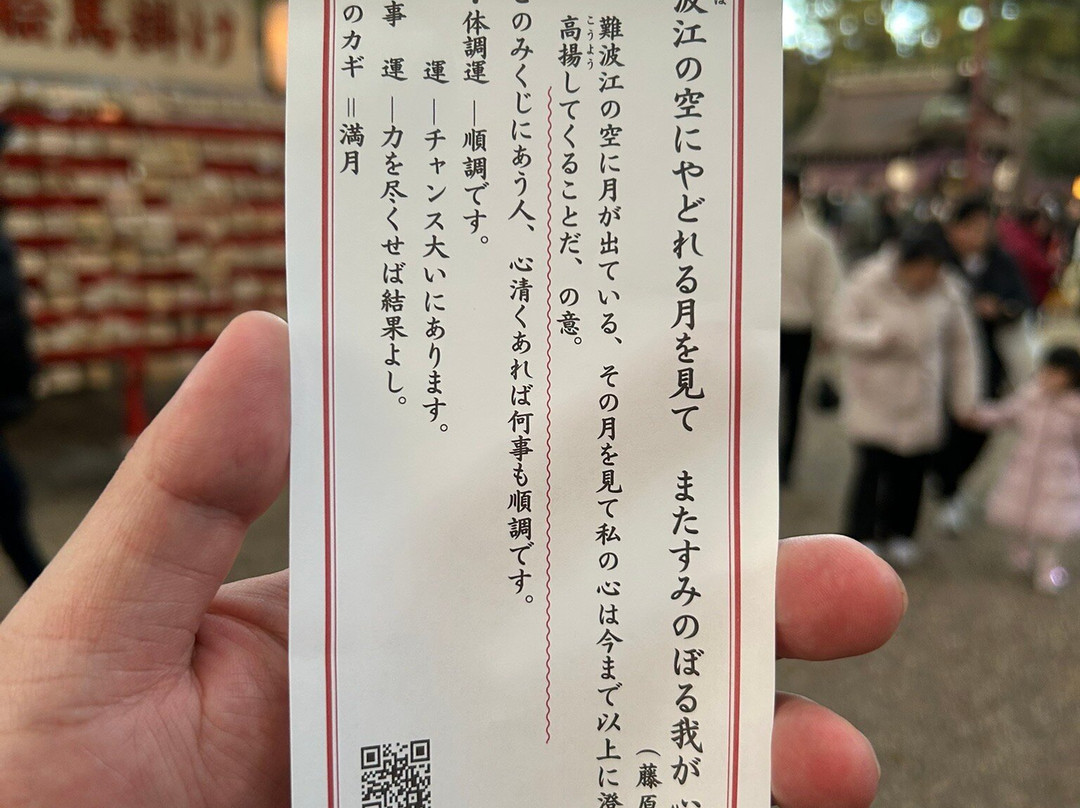 波江の空にやどれる月を見て　またすみのぼる我が心
（藤原
難波江の空に月が出ている、その月を見て私の心は今まで以上に澄
高揚してくることだ、の意。
こうよう
このみくじにあう人、　心清くあれば何事も順調です。
体調運｜順調です。
運｜チャンス大いにあります。
事　運｜力を尽くせば結果よし。
のカギ＝満月
絵馬掛け